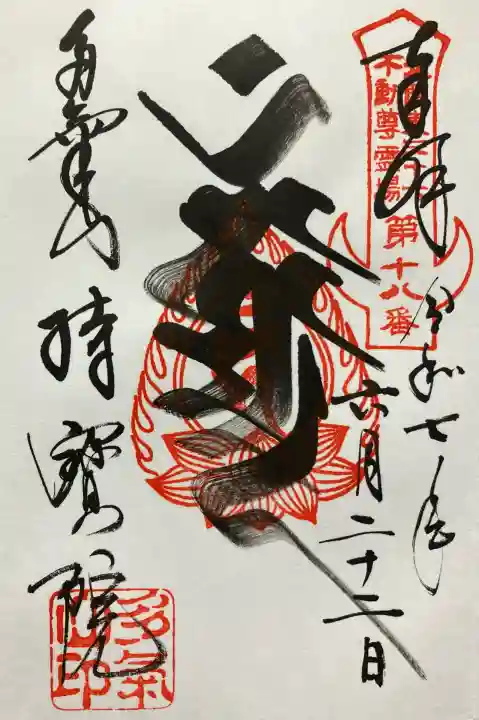 奉拝
令和七年
六月二十二日
不動尊霊場
第十八番
多氣山 持寳院
多氣山印